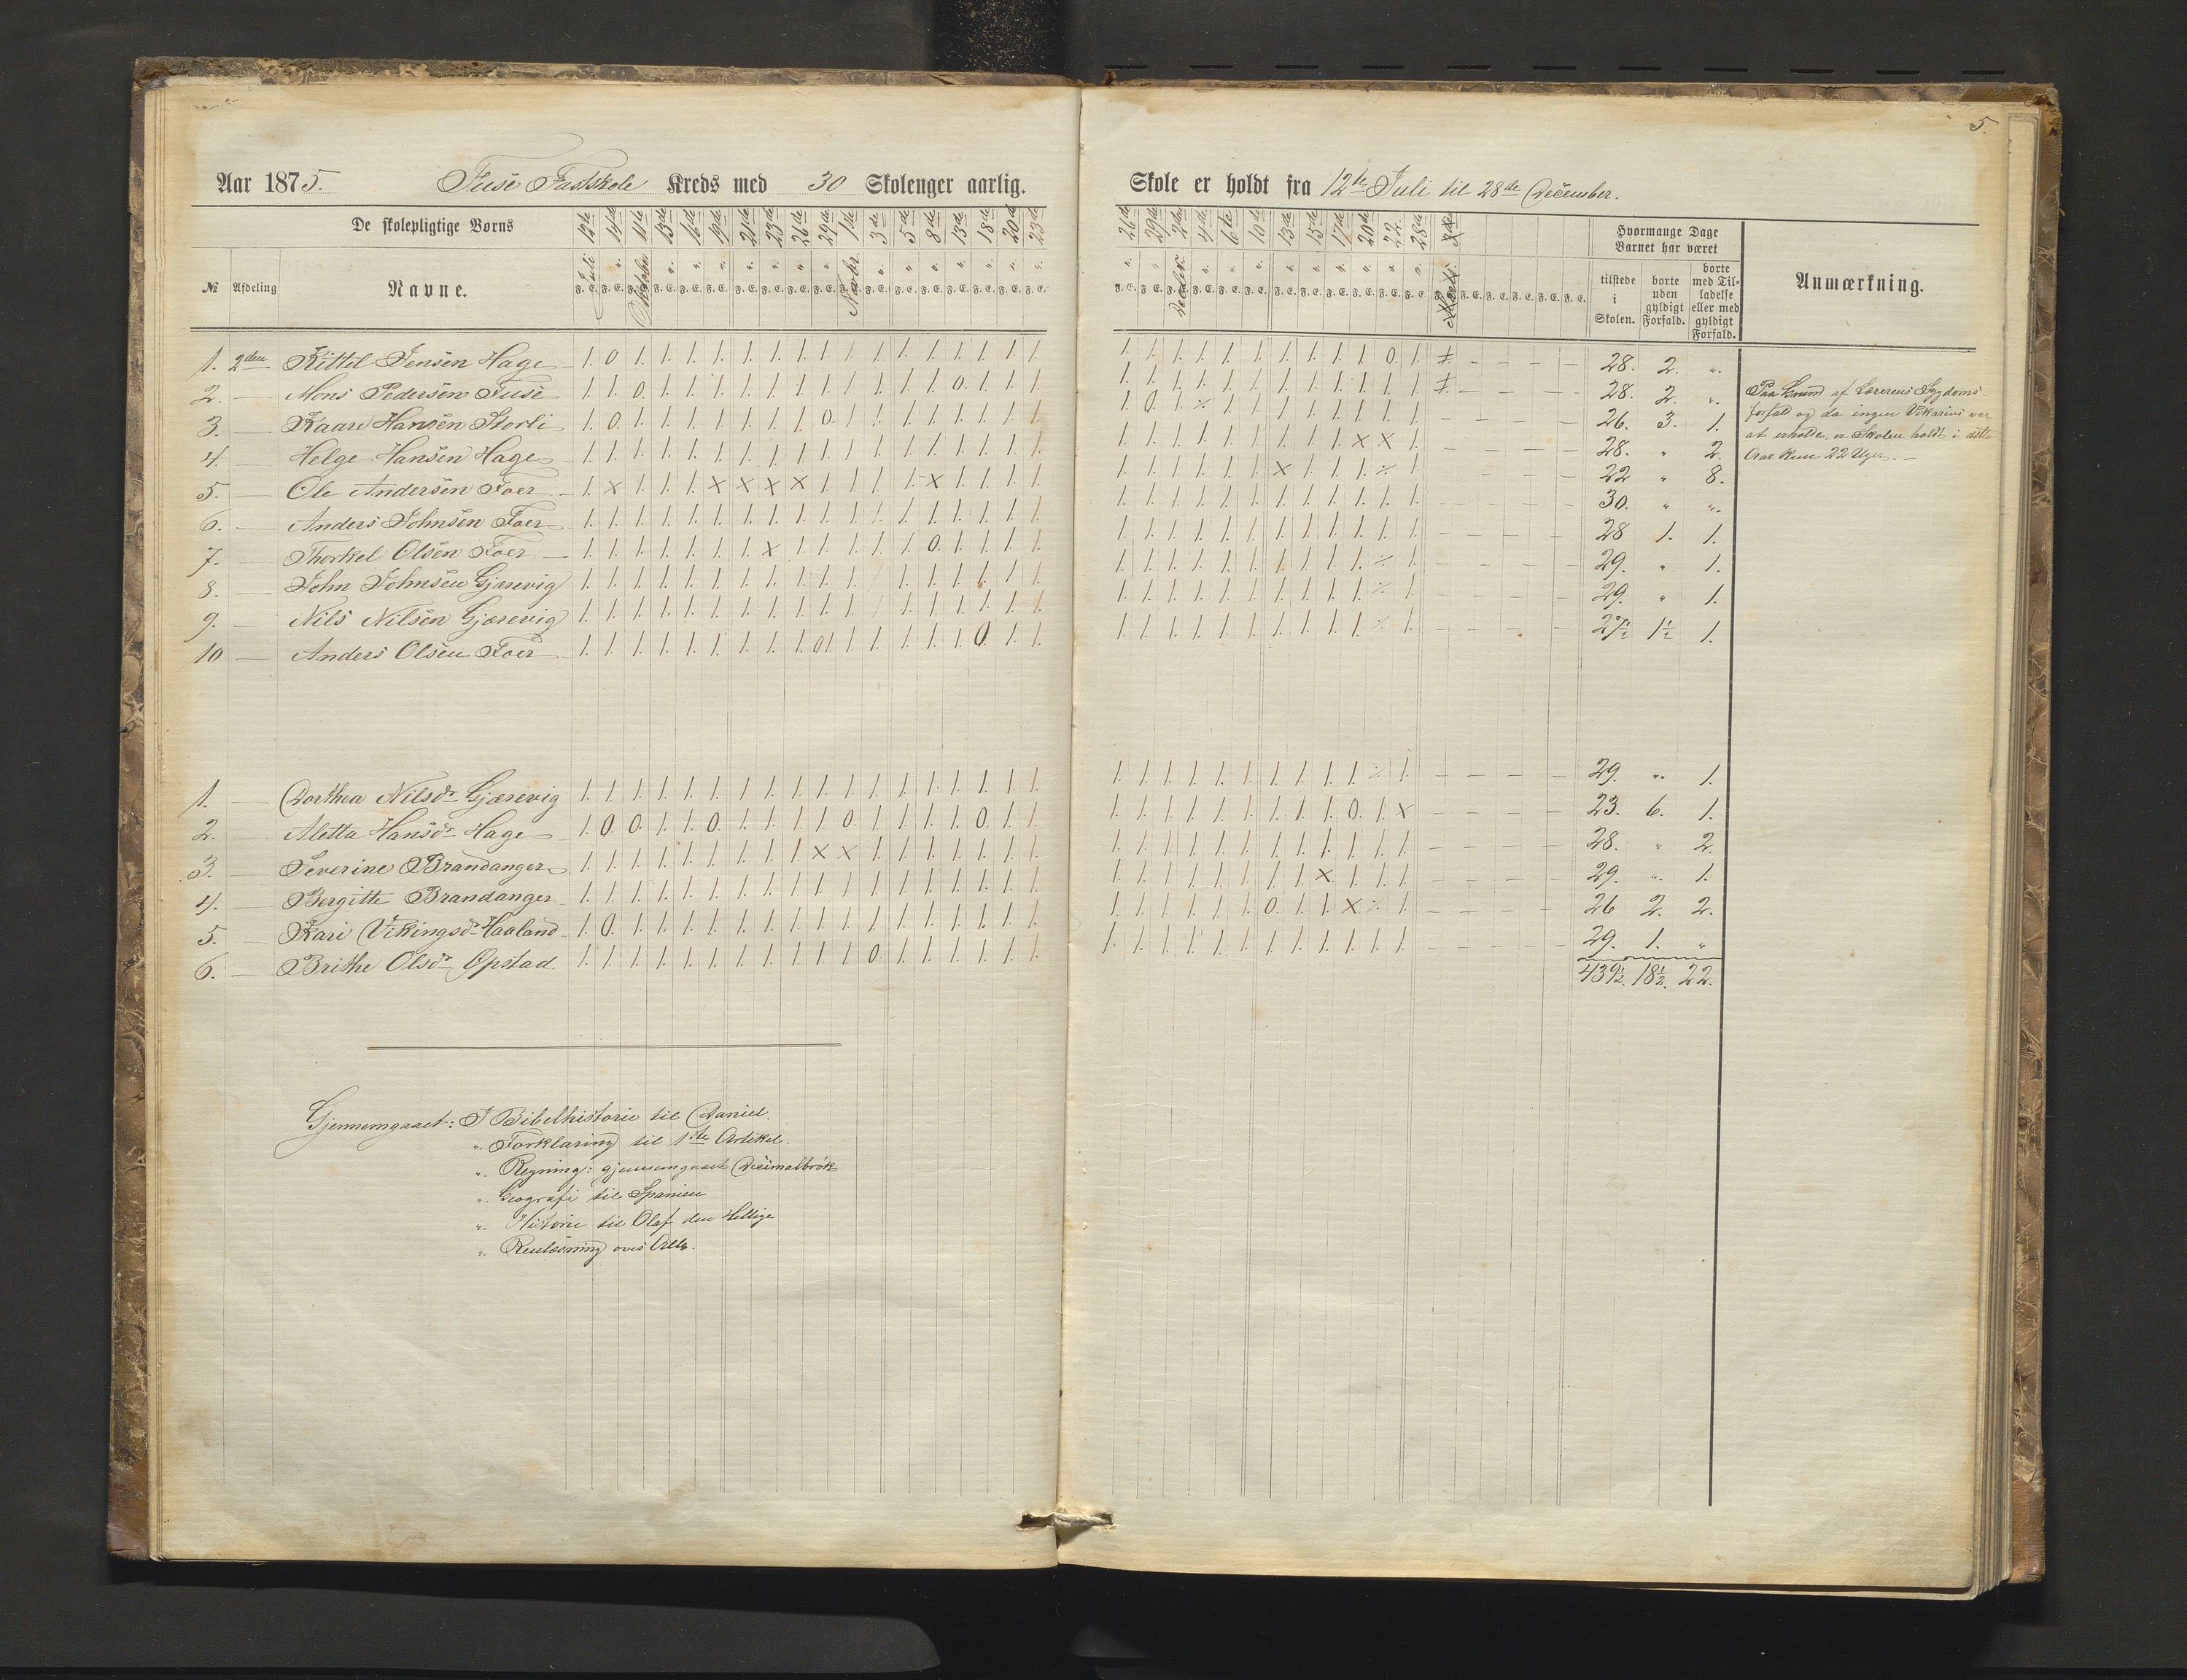 5.
Aar 1875. Fuse Fastskole Kreds med 30 Skoleuger aarlig.
De skolepligtige Børns
№ Afdeling Navne.
12te 14de 11te 13de 16de 19de 21de 23de 26de 29de 1ste 3de 5te 8de 13de 18de 20de 23de
Juli " Oktober " " " " " " " Novbr " " " " " " "
F. E. F. E. F. E. F. E. F. E. F. E. F. E. F. E. F. E. F. E. F. E. F. E. F. E. F. E. F. E. F. E. F. E. F. E.
1. 2den Kittel Jensen Hage 1. 0 1. 1. 1. 1. 1. 1. 1. 1. 1. 1. 1. 1. 1. 1. 1. 1.
2. — Mons Pedersen Fuse 1. 1. 0. 1. 1. 1. 1. 1. 1. 1. 1. 1. 1. 1. 0. 1. 1. 1.
3. — Kaare Hansen Storli 1. 0. 1. 1. 1. 1. 1. 1. 1. 0. 1. 1. 1. 1. 1. 1. 1. 1.
4. — Helge Hansen Hage 1. 1. 1. 1. 1. 1. 1. 1. 1. 1. 1. 1. 1. 1. 1. 1. 1. 1.
5. — Ole Andersen Foer 1. X 1. 1. 1. X X X X 1. 1. 1. 1. X 1. 1. 1. 1.
6. — Anders Johnsen Foer 1. 1. 1. 1. 1. 1. 1. 1. 1. 1. 1. 1. 1. 1. 1. 1. 1. 1.
7. — Thorkel Olsen Foer 1. 1. 1. 1. 1. 1. 1. X 1. 1. 1. 1. 1. 0. 1. 1. 1. 1.
8. — John Johnsen Gjærevig 1. 1. 1. 1. 1. 1. 1. 1. 1. 1. 1. 1. 1. 1. 1. 1. 1. 1.
9. — Nils Nilsen Gjærevig 1. 1. 1. 1. 1. 1. 1. 1. 1. 1. 1. 1. 1. 1. 1. 1. 1. 1.
10 — Anders Olsen Foer 1. 1. 1. 1. 1. 1. 1. 1. 1. 01. 1. 1. 1. 1. 1. 0. 1. 1.
1. — Dorthea Nilsdr Gjærevig 1. 1. 1. 1. 1. 1. 1. 1. 1. 1. 1. 1. 1. 1. 1. 1. 1. 1.
2. — Aletta Hansdr Hage 1. 0. 0. 1. 1. 0. 1. 1. 1. 1. 0. 1. 1. 1. 1. 0. 1. 1.
3. — Severine Brandanger 1. 1. 1. 1. 1. 1. 1. 1. 1. X X 1. 1. 1. 1. 1. 1. 1.
4. — Bergitte Brandanger 1. 1. 1. 1. 1. 1. 1. 1. 1. 1. 1. 1. 1. 1. 1. 1. 1. 1.
5. — Kari Vikingsdr Haaland 1. 0. 1. 1. 1. 1. 1. 1. 1. 1. 1. 1. 1. 1. 1. 1. 1. 1.
6. — Brithe Olsdr Opstad. 1. 1. 1. 1. 1. 1. 1. 1. 1. 1. 1. 0 1. 1. 1. 1. 1. 1.
Gjennemgaaet: I Bibelhistorie til Daniel.
". Forklaring til 1ste Artikel.
". Regning: gjennemgaaet Decimalbrøk
". Geografi til Spanien
". Historie til Olaf den Hellige
". Renlæsning øves Alle.
Skole er holdt fra 12te Juli til 28de December.
26de 29de 2den 4de 6te 10de 13de 15de 17de 20de 22. 28de
" " Decbr " " " " " " " " "
F. E. F. E. F. E. F. E. F. E. F. E. F. E. F. E. F. E. F. E. F. E. F. E. F. E. F. E. F. E. F. E. F. E.
Hvormange Dage
Barnet har været
tilstede i Skolen.
borte uden gyldigt Forfald.
borte med Tilladelse eller med gyldigt Forfald.
Anmærkning.
1. 1. 1. 1. 1. 1. 1. 1. 1. 1. 0. 1. 28. 2. ".
1. 1. 1. 1. 1. 1. 1. 1. 1. 1. 1. 1. 28. 2. ".
1. 0. 1. ./. 1. 1. 1. 1. 1. 1. 1. 1. 26. 3. 1.
1. 1. 1. 1. 1. 1. 1. 1. 1. X X 1. 28. " 2.
1. 1. 1. 1. 1. 1. X 1. 1. 1. ./. 1. 22 " 8.
1. 1. 1. 1. 1. 1. 1. 1. 1. 1. 1. 1. 30. " ".
1. 1. 1. 1. 1. 1. 1. 1. 1. 1. 1. 1. 28 1. 1.
1. 1. 1. 1. 1. 1. 1. 1. 1. 1. ./. 1. 29. " 1.
1. 1. 1. 1. 1. 1. 1. 1. 1. 1. ./. 1. 29. " 1.
1. 1. 1. 1. 1. 1. 1. 1. 1. 1. ./. 1. 27½ 1½ 1.
Paa Grund af Lærerens Sygdoms-
forfald og da ingen Vikarius var
at erholde, er Skolen holdt i dette
Aar kun 22 Uger. —
1. 1. 1. 1. 1. 1. 1. 1. 1. 1. ./. 1. 29. ". 1.
1. 1. 1. 1. 1. 1. 1. 1. 1. 0. 1. X 23. 6. 1.
1. 1. 1. 1. 1. 1. 1. 1. 1. 1. 1. 1. 28. " 2.
1. 1. 1. 1. 1. 1. 1. 1. X. 1. 1. 1. 29. ". 1.
1. 1. 1. 1. 1. 1. 0. 1. 1. X ./. 1. 26 2. 2.
1. 1. 1. 1. 1. 1. 1. 1. 1. 1. 1. 1. 29. 1. "
439½. 18½. 22.